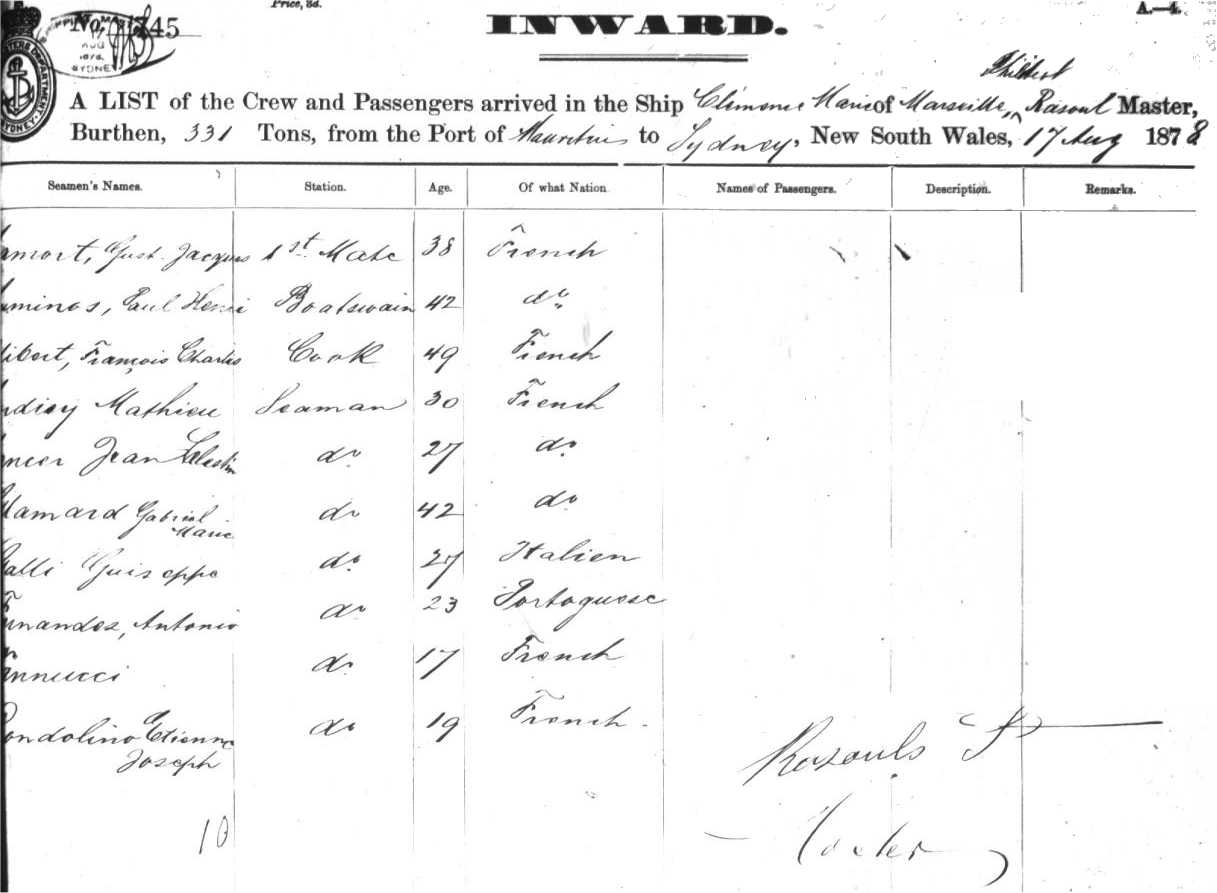 Price, 3d.
No. 1745
A.—4.
INWARD.
SYDNEY
Philbert
A LIST of the Crew and Passengers arrived in the Ship Clémence Marie of Marseille, Rasoul Master,
Burthen, 331 Tons, from the Port of Mauritius to Sydney, New South Wales, 17 Aug 1878
Seamen's Names. Station. Age. Of what Nation. Names of Passengers. Description. Remarks.
amort, Gust. Jacques 1st Mate 38 French
minos, Paul Henri Boatswain 42 do
libert, François Charles Cook 49 French
Mathieu Seaman 30 French
Jean Celestin do 27 do
Hamard Gabriel do 42 do
Marie
Galli Guiseppe do 27 Italien
Fernandes, Antonio do 23 Portoguese
nnucci do 17 French
ondolino Etienne do 19 French
Joseph
Rasouls P
10